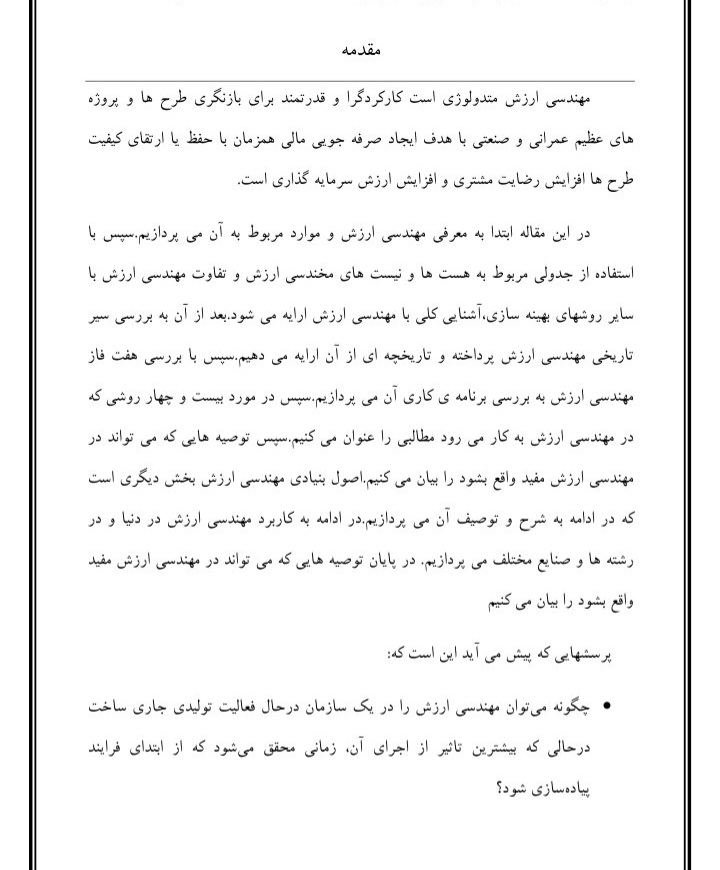 مقدمه
مهندسی ارزش متدولوژی است کارکردگرا و قدرتمند برای بازنگری طرح ها و پروژه
های عظیم عمرانی و صنعتی با هدف ایجاد صرفه جویی مالی همزمان با حفظ یا ارتقای کیفیت
طرح ها افزایش رضایت مشتری و افزایش ارزش سرمایه گذاری است.
در این مقاله ابتدا به معرفی مهندسی ارزش و موارد مربوط به آن می پردازیم.سپس با
استفاده از جدولی مربوط به هست ها و نیست های مخندسی ارزش و تفاوت مهندسی ارزش با
سایر روشهای بهینه سازی،آشنایی کلی با مهندسی ارزش ارایه می شود.بعد از آن به بررسی سیر
تاریخی مهندسی ارزش پرداخته و تاریخچه ای از آن ارایه می دهیم.سپس با بررسی هفت فاز
مهندسی ارزش به بررسی برنامه ی کاری آن می پردازیم.سپس در مورد بیست و چهار روشی که
در مهندسی ارزش به کار می رود مطالبی را عنوان می کنیم.سپس توصیه هایی که می تواند در
مهندسی ارزش مفید واقع بشود را بیان می کنیم.اصول بنیادی مهندسی ارزش بخش دیگری است
که در ادامه به شرح و توصیف آن می پردازیم.در ادامه به کاربرد مهندسی ارزش در دنیا و در
رشته ها و صنایع مختلف می پردازیم. در پایان توصیه هایی که می تواند در مهندسی ارزش مفید
واقع بشود را بیان می کنیم
پرسشهایی که پیش می آید این است که:
• چگونه می‌توان مهندسی ارزش را در یک سازمان درحال فعالیت تولیدی جاری ساخت
درحالی که بیشترین تاثیر از اجرای آن، زمانی محقق می‌شود که از ابتدای فرایند
پیاده‌سازی شود؟